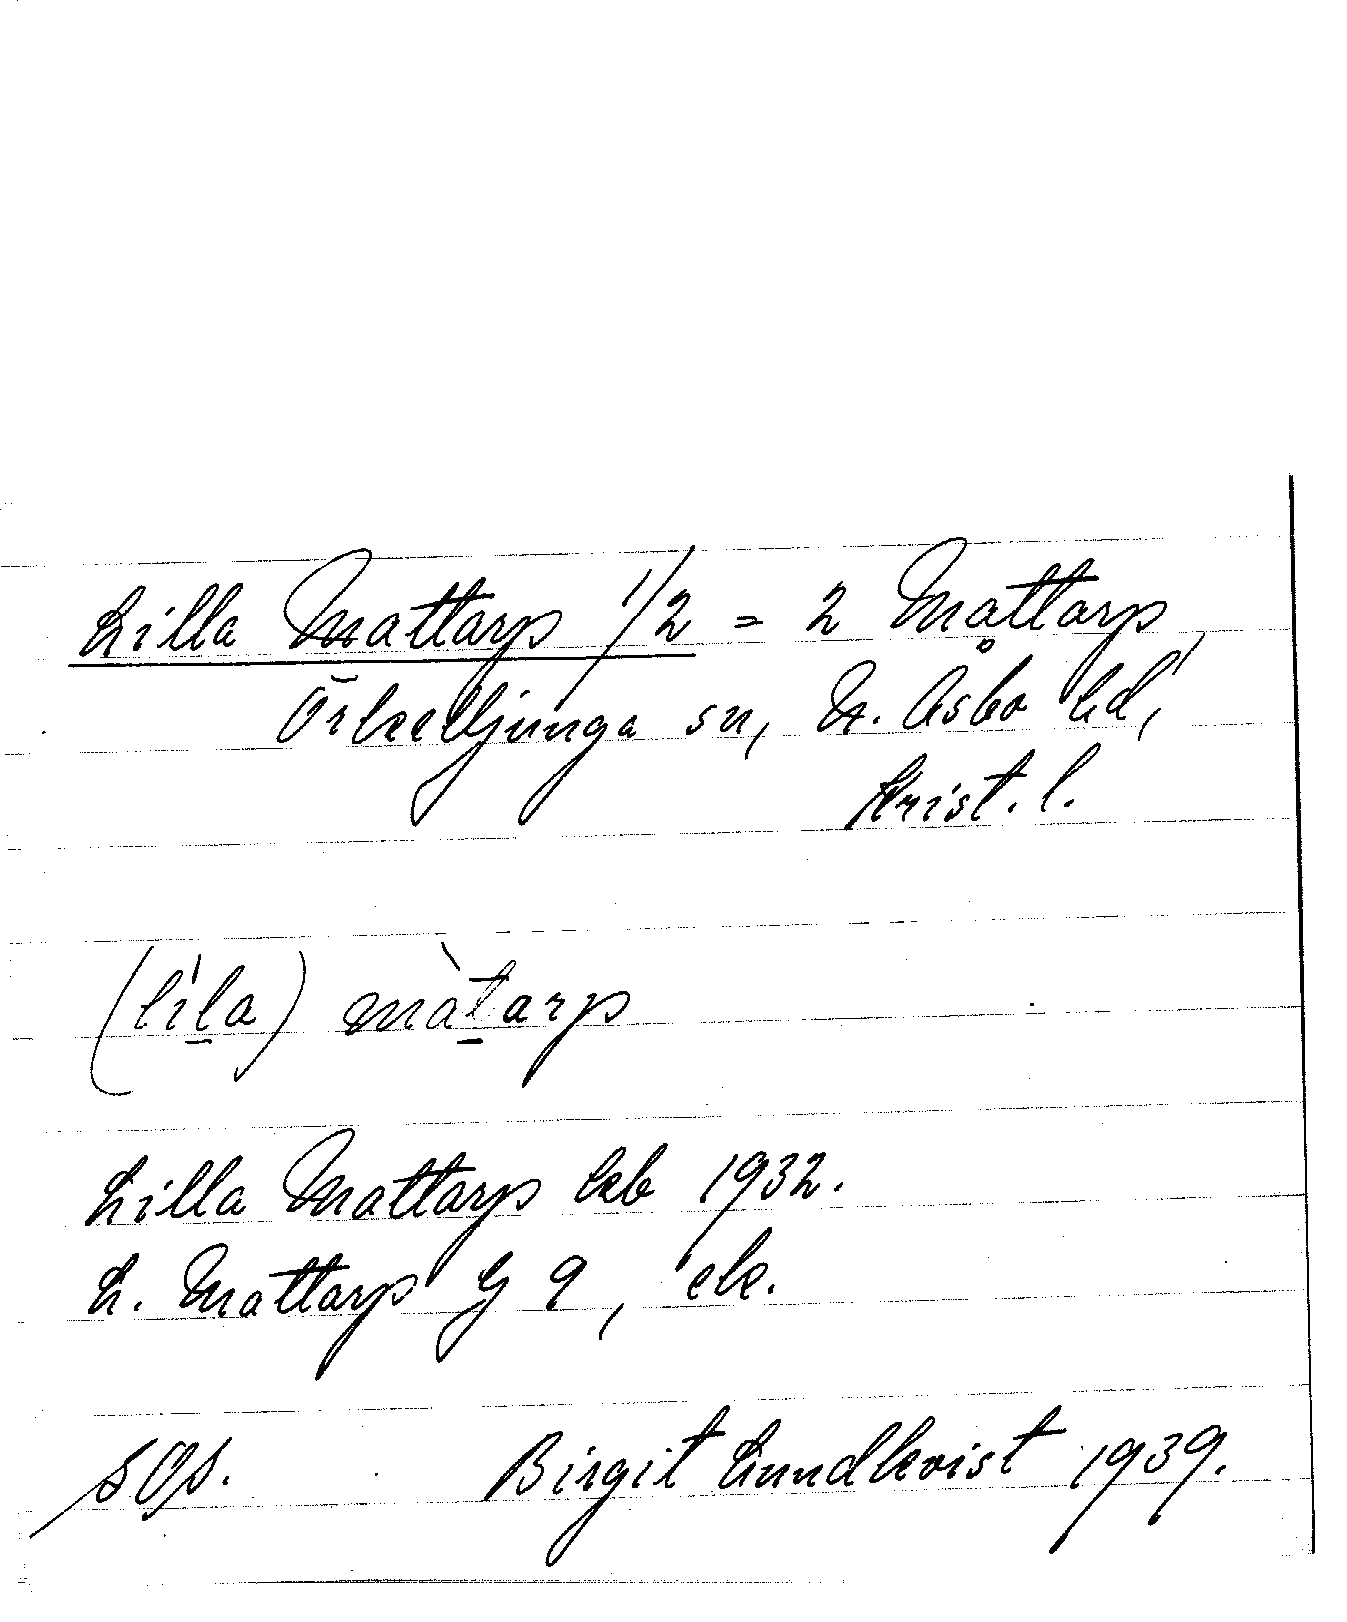 Lilla Mattarp 1/2 = 2 Mattarp,
Örkelljunga sn, N. Åsbo hd,
Krist. l.
(lìl̠a) màt̠arp
Lilla Mattarp kb 1932.
L. Mattarp G 9, ek.
SOS. Birgit Lundkvist 1939.